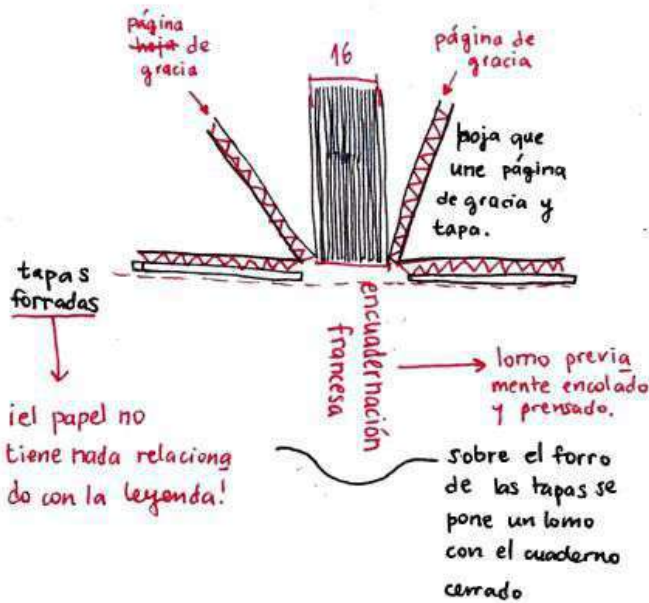 página
hoja de
gracia
16
página de
gracia
hoja que
une página
de gracia y
tapa.
tapas
forradas
encuadernación
francesa
lomo previa
mente encolado
y prensado.
¡el papel no
tiene nada relaciona
do con la leyenda!
sobre el forro
de las tapas se
pone un lomo
con el cuaderno
cerrado